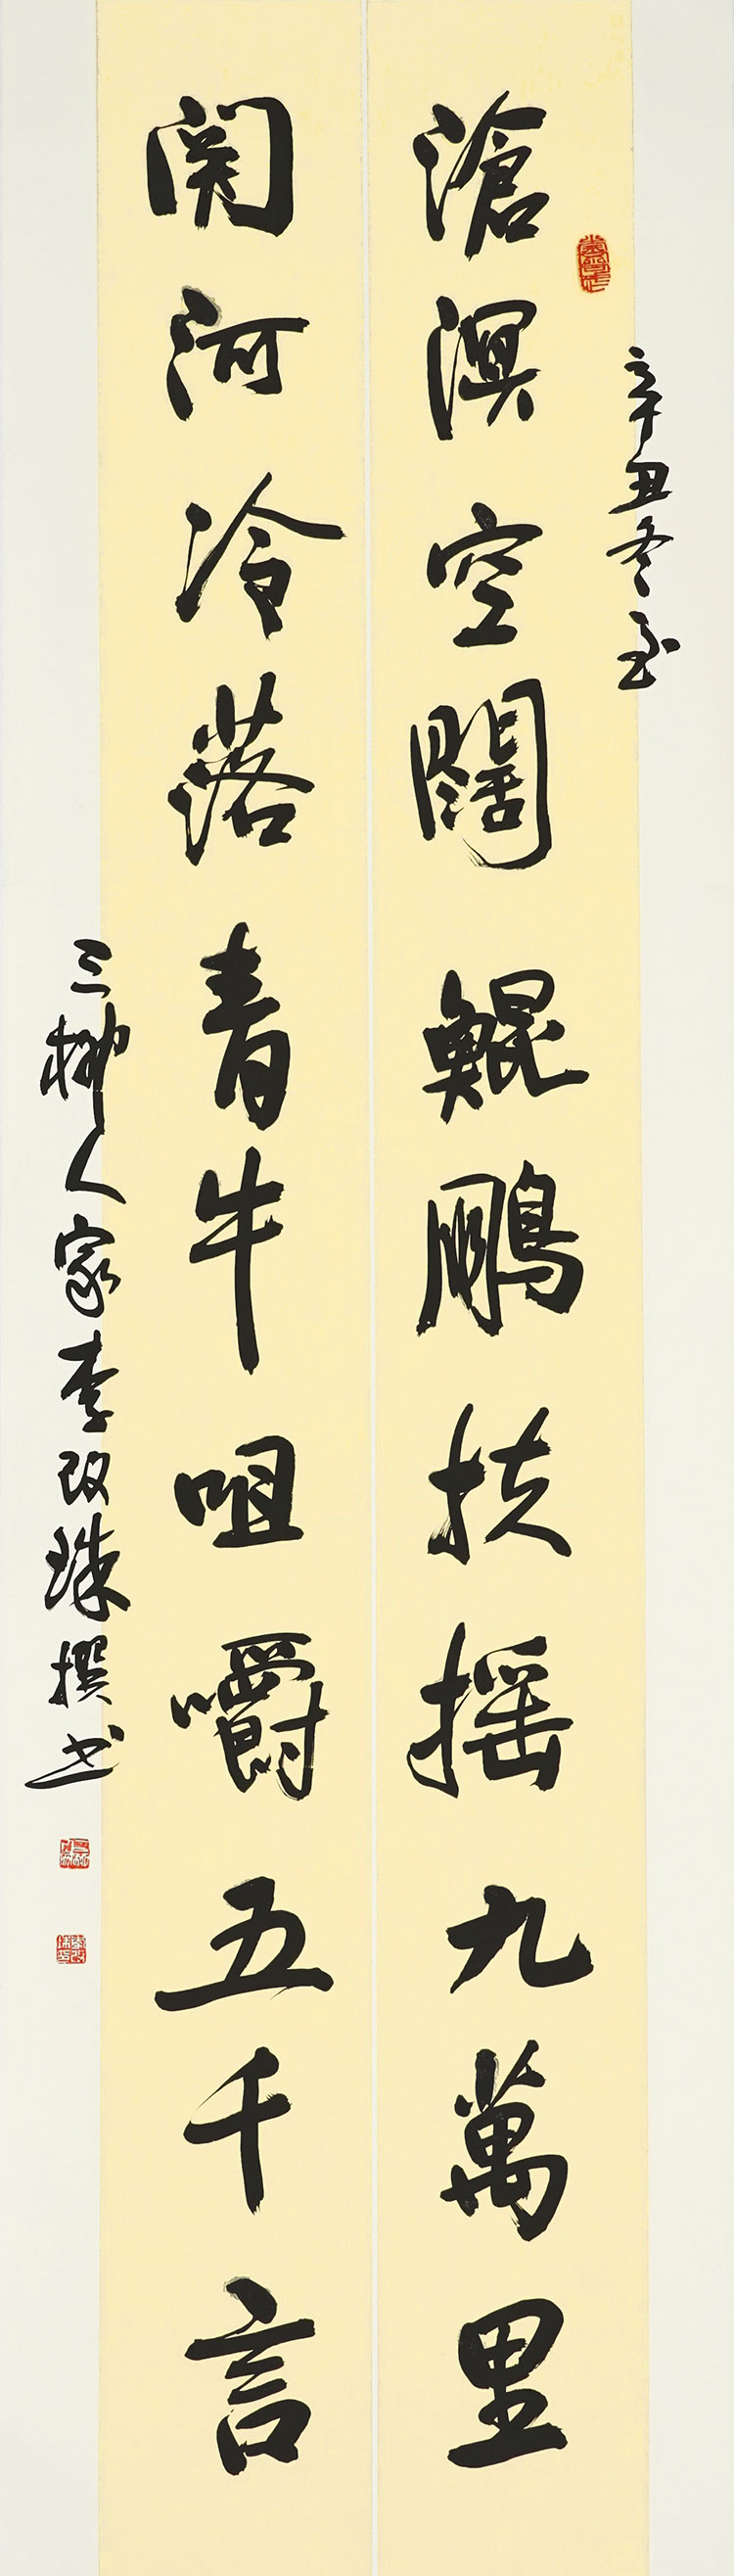 辛丑冬至
滄溟空闊鯤鵬扶摇九萬里
関河冷落青牛咀嚼五千言
三柳人家李改珠撰书